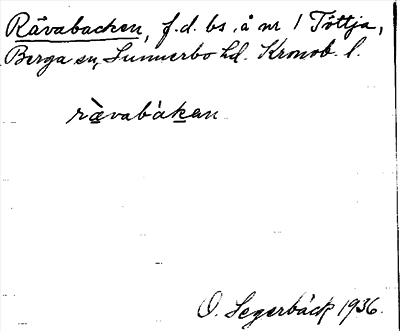 Rävabacken, f.d. bs. å nr 1 Töttja,
Berga sn, Sunnerbo hd. Kronob. l.
rävabàkan
O. Segerbäck 1936.